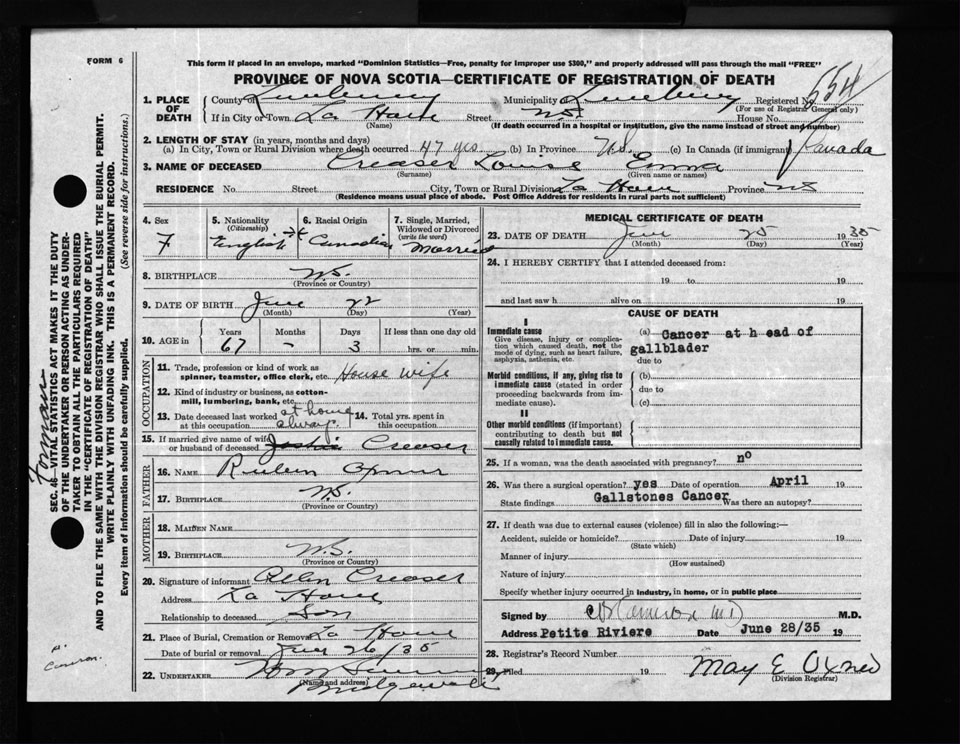 FORM 6
This form if placed in an envelope, marked "Dominion Statistics—Free, penalty for improper use $300," and properly addressed will pass through the mail "FREE"
PROVINCE OF NOVA SCOTIA—CERTIFICATE OF REGISTRATION OF DEATH
1. PLACE OF DEATH
County of Lunenburg Municipality Lunenburg Registered No. 554
(For use of Registrar General only)
If in City or Town La Have Street N.S. House No.
(Name) (If death occurred in a hospital or institution, give the name instead of street and number)
2. LENGTH OF STAY (in years, months and days)
(a) In City, Town or Rural Division where death occurred 47 yrs. (b) In Province N.S. (c) In Canada (if immigrant) Canada
3. NAME OF DECEASED Creaser Louise Emma
(Surname) (Given name or names)
RESIDENCE No. Street City, Town or Rural Division La Have Province NS
(Residence means usual place of abode. Post Office Address for residents in rural parts not sufficient)
4. Sex F
5. Nationality (Citizenship) English
6. Racial Origin Canadian
7. Single, Married, Widowed or Divorced (write the word) Married
8. BIRTHPLACE N.S.
(Province or Country)
9. DATE OF BIRTH June 22
(Month) (Day) (Year)
10. AGE in Years Months Days If less than one day old
67 - 3 hrs. or min.
OCCUPATION
11. Trade, profession or kind of work as spinner, teamster, office clerk, etc. House wife
12. Kind of industry or business, as cotton-mill, lumbering, bank, etc.
13. Date deceased last worked at this occupation at home always
14. Total yrs. spent in this occupation
15. If married give name of wife or husband of deceased Creaser
FATHER
16. NAME Ruben
17. BIRTHPLACE N.S.
(Province or Country)
MOTHER
18. MAIDEN NAME
19. BIRTHPLACE N.S.
(Province or Country)
20. Signature of informant Allen Creaser
Address La Have
Relationship to deceased Son
21. Place of Burial, Cremation or Removal La Have
Date of burial or removal 26/35
22. UNDERTAKER
(Name and address)
Bridgewater
MEDICAL CERTIFICATE OF DEATH
23. DATE OF DEATH June 25 1935
(Month) (Day) (Year)
24. I HEREBY CERTIFY that I attended deceased from:
19 to 19
and last saw h alive on 19
CAUSE OF DEATH
I
Immediate cause
Give disease, injury or complication which caused death, not the mode of dying, such as heart failure, asphyxia, asthenia, etc.
(a) Cancer at h ead of gallblader
due to
Morbid conditions, if any, giving rise to immediate cause (stated in order proceeding backwards from immediate cause).
(b)
due to
(c)
II
Other morbid conditions (if important) contributing to death but not causally related to immediate cause.
25. If a woman, was the death associated with pregnancy? no
26. Was there a surgical operation? yes Date of operation April 19
State findings Gallstones Cancer Was there an autopsy?
27. If death was due to external causes (violence) fill in also the following:—
Accident, suicide or homicide? Date of injury 19
(State which)
Manner of injury
(How sustained)
Nature of injury
Specify whether injury occurred in industry, in home, or in public place
Signed by Cameron MD M.D.
Address Petite Riviere Date June 28/35 19
28. Registrar's Record Number
29. Filed 19 May E Oxner
(Division Registrar)
SEC. 46—VITAL STATISTICS ACT MAKES IT THE DUTY
OF THE UNDERTAKER OR PERSON ACTING AS UNDER-
TAKER TO OBTAIN ALL THE PARTICULARS REQUIRED
IN THE "CERTIFICATE OF REGISTRATION OF DEATH"
AND TO FILE THE SAME WITH THE DIVISION REGISTRAR WHO SHALL ISSUE THE BURIAL PERMIT.
WRITE PLAINLY WITH UNFADING INK. THIS IS A PERMANENT RECORD.
Every item of information should be carefully supplied. (See reverse side for instructions.)